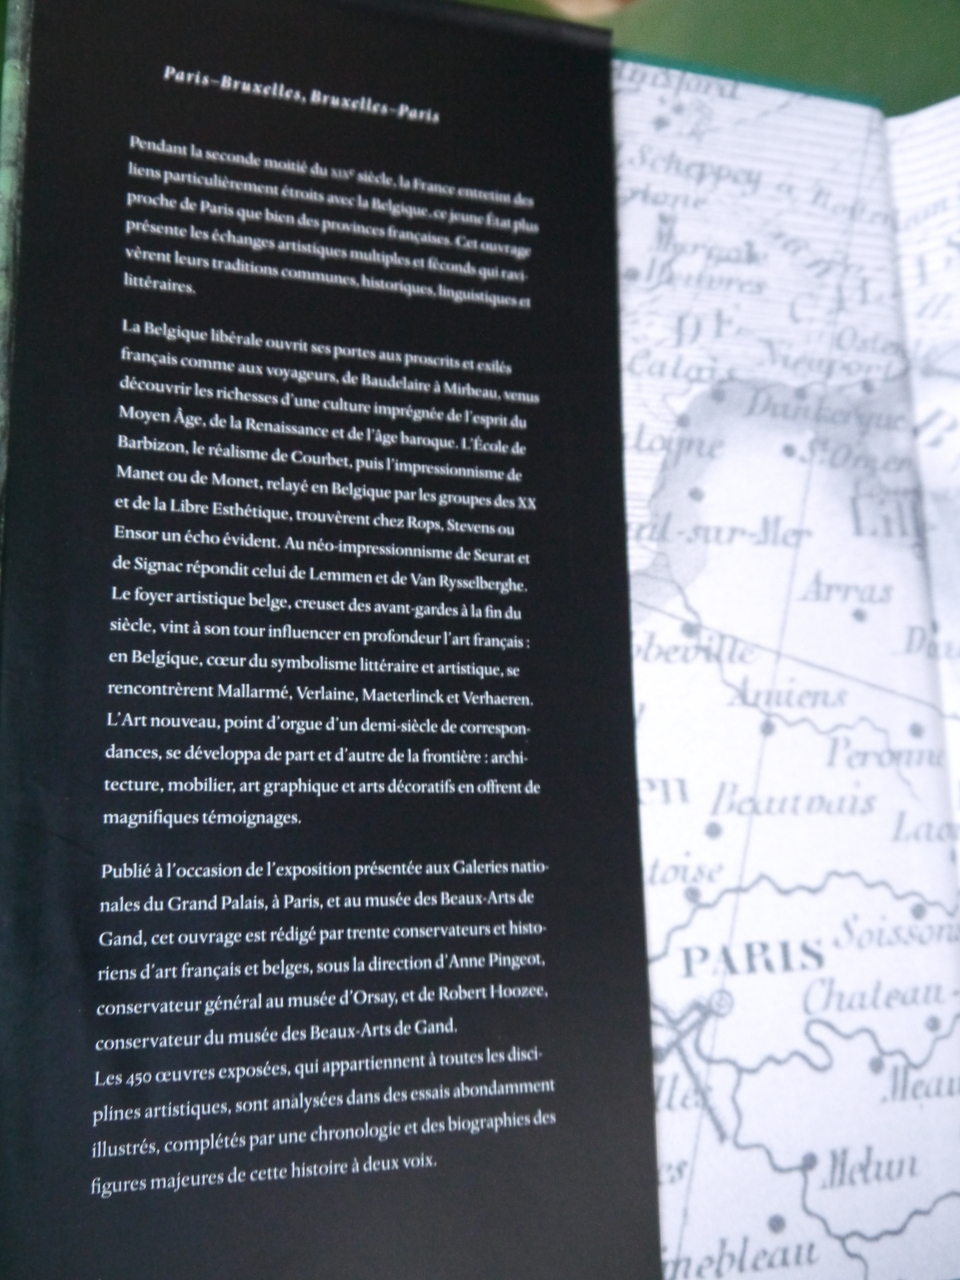 Paris–Bruxelles, Bruxelles–Paris
Pendant la seconde moitié du XIXe siècle, la France entretint des
liens particulièrement étroits avec la Belgique, ce jeune État plus
proche de Paris que bien des provinces françaises. Cet ouvrage
présente les échanges artistiques multiples et féconds qui ravi-
vèrent leurs traditions communes, historiques, linguistiques et
littéraires.
La Belgique libérale ouvrit ses portes aux proscrits et exilés
français comme aux voyageurs, de Baudelaire à Mirbeau, venus
découvrir les richesses d'une culture imprégnée de l'esprit du
Moyen Âge, de la Renaissance et de l'âge baroque. L'École de
Barbizon, le réalisme de Courbet, puis l'impressionnisme de
Manet ou de Monet, relayé en Belgique par les groupes des XX
et de la Libre Esthétique, trouvèrent chez Rops, Stevens ou
Ensor un écho évident. Au néo-impressionnisme de Seurat et
de Signac répondit celui de Lemmen et de Van Rysselberghe.
Le foyer artistique belge, creuset des avant-gardes à la fin du
siècle, vint à son tour influencer en profondeur l'art français :
en Belgique, cœur du symbolisme littéraire et artistique, se
rencontrèrent Mallarmé, Verlaine, Maeterlinck et Verhaeren.
L'Art nouveau, point d'orgue d'un demi-siècle de correspon-
dances, se développa de part et d'autre de la frontière : archi-
tecture, mobilier, art graphique et arts décoratifs en offrent de
magnifiques témoignages.
Publié à l'occasion de l'exposition présentée aux Galeries natio-
nales du Grand Palais, à Paris, et au musée des Beaux-Arts de
Gand, cet ouvrage est rédigé par trente conservateurs et histo-
riens d'art français et belges, sous la direction d'Anne Pingeot,
conservateur général au musée d'Orsay, et de Robert Hoozee,
conservateur du musée des Beaux-Arts de Gand.
Les 450 œuvres exposées, qui appartiennent à toutes les disci-
plines artistiques, sont analysées dans des essais abondamment
illustrés, complétés par une chronologie et des biographies des
figures majeures de cette histoire à deux voix.
Scheppey
Calais
Nieuport
Dunkerque
St Omer
Lill
Arras
beville
Amiens
Peronne
en
Beauvais
Lao
toise
Soissons
PARIS
Chateau-
lles
Meau
es
Melun
nebleau